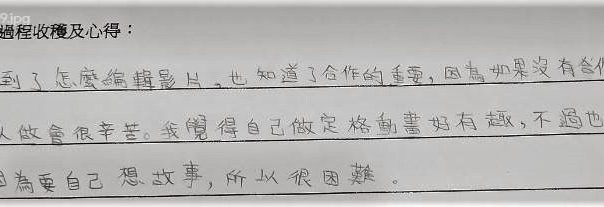 9.jpg
過程收穫及心得：
到了怎麼編輯影片，也知道了合作的重要，因為如果沒有合作
人做會很辛苦。我覺得自己做定格動畫好有趣，不過也
因為要自己想故事，所以很困難。